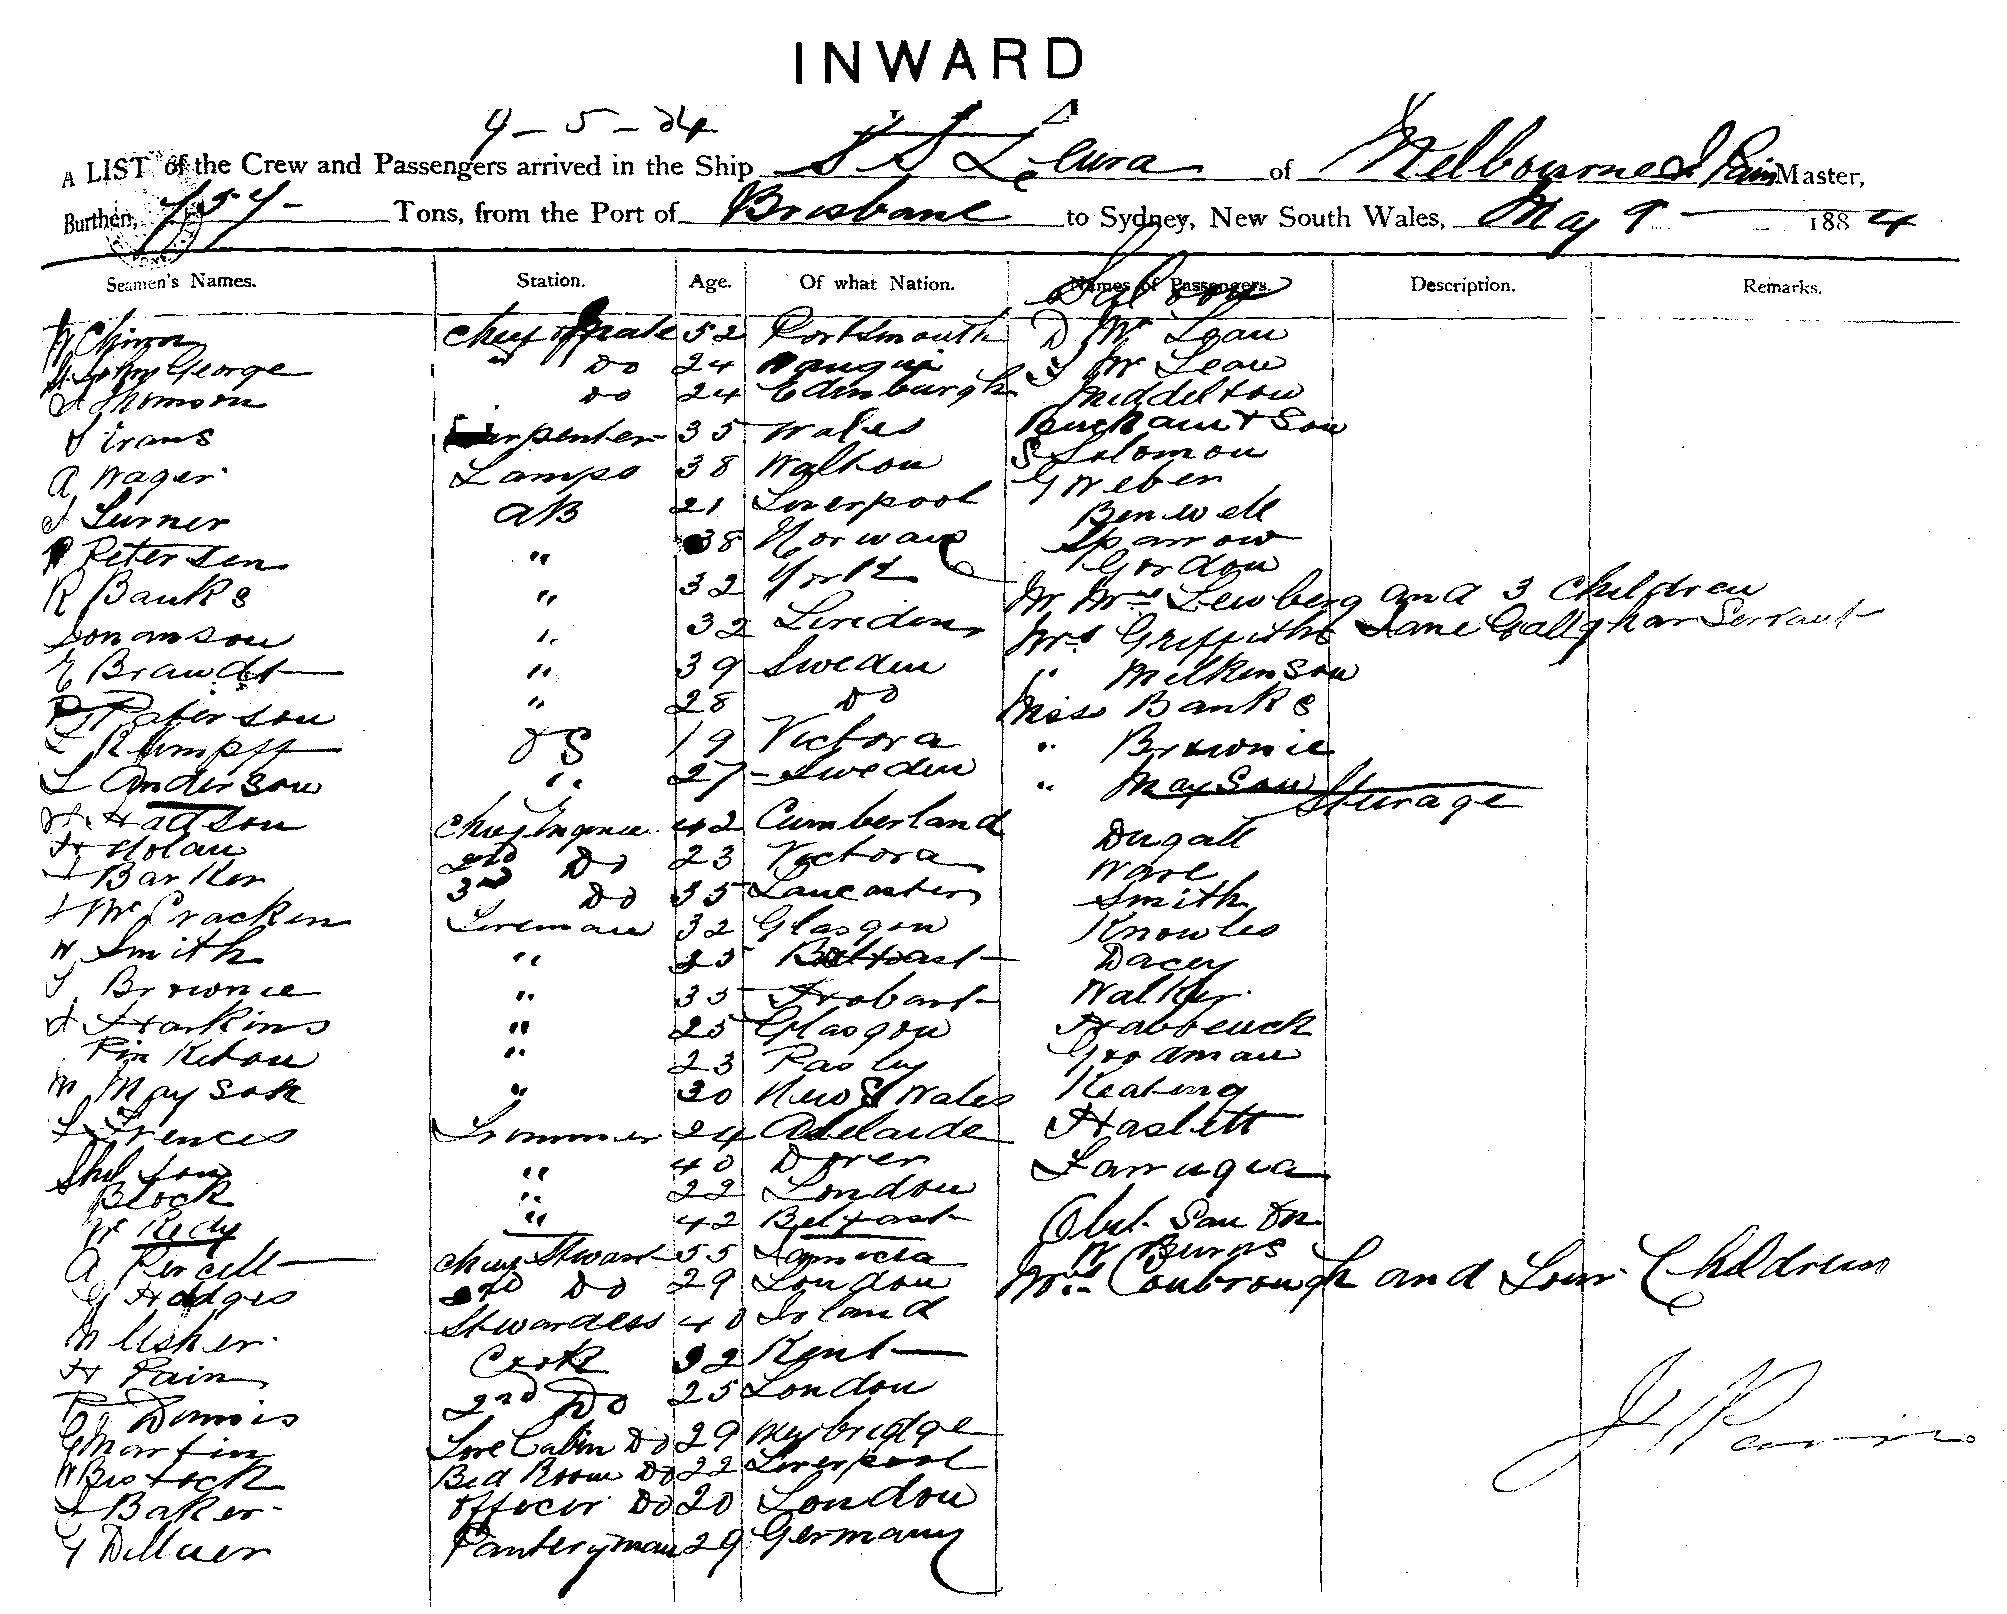 INWARD
9-5-84
A LIST of the Crew and Passengers arrived in the Ship SS Leura of Melbourne J Pain Master,
Burthen, 757 Tons, from the Port of Brisbane to Sydney, New South Wales, May 9 1884
Seamen's Names. Station. Age. Of what Nation. Names of Passengers. Description. Remarks.
Saloon
Chief Mate 52 Portsmouth D Mc Lean
John George Do 24 J Mc Lean
Thomson Do 24 Edinburgh Middelton
Evans Carpenter 35 Wales & Son
A Wager Lamps 38 Walton S Solomon
J Turner AB 21 Liverpool G Weber
Petersen " 38 Norway Benwell
R Banks " 32 York Sparrow
" 32 London Gordon
E Brandt " 39 Sweden Mr Mrs Lewberg and 3 Children
Paterson " 28 Do Mrs Griffiths Jane Gallghar Servant
Rumpff OS 19 Victora " Milkenson
L Anderson " 27 Sweden Miss Banks
H. Hattson Chief Engineer 42 Cumberland " Brownie
H Nolan 2nd Do 23 Victora " Mayson
Barker 3rd Do 35 Lancaster Sturage
J McCracken Fireman 32 Glasgow Dugall
W Smith " 25 Belfast Ware
J Brownie " 35 Hobart Smith
J Harkins " 25 Glasgow Knowles
Pinketon " 23 Pasley Dacey
M Mayson " 30 New S Wales Walker
Frences Trimmer 24 Adelaide
Shelton " 40 Dover Goodman
Block " 22 London Keating
Redy " 42 Belfast Haslett
A Percell Chief Stward 55 Jamicia Farrugia
G Hodges 2nd Do 29 London
M Usher Stwardess 40 Irland W Burns
H Pain Cook 32 Kent Mrs Coubrough and Four Children
Dennis 2nd Do 25 London
G Martin Fore Cabin Do 29 Weybridge
W Bistock Bed Room Do 22 Liverpool
J Baker Officer Do 20 London
Panteryman 29 Germany
J Pain